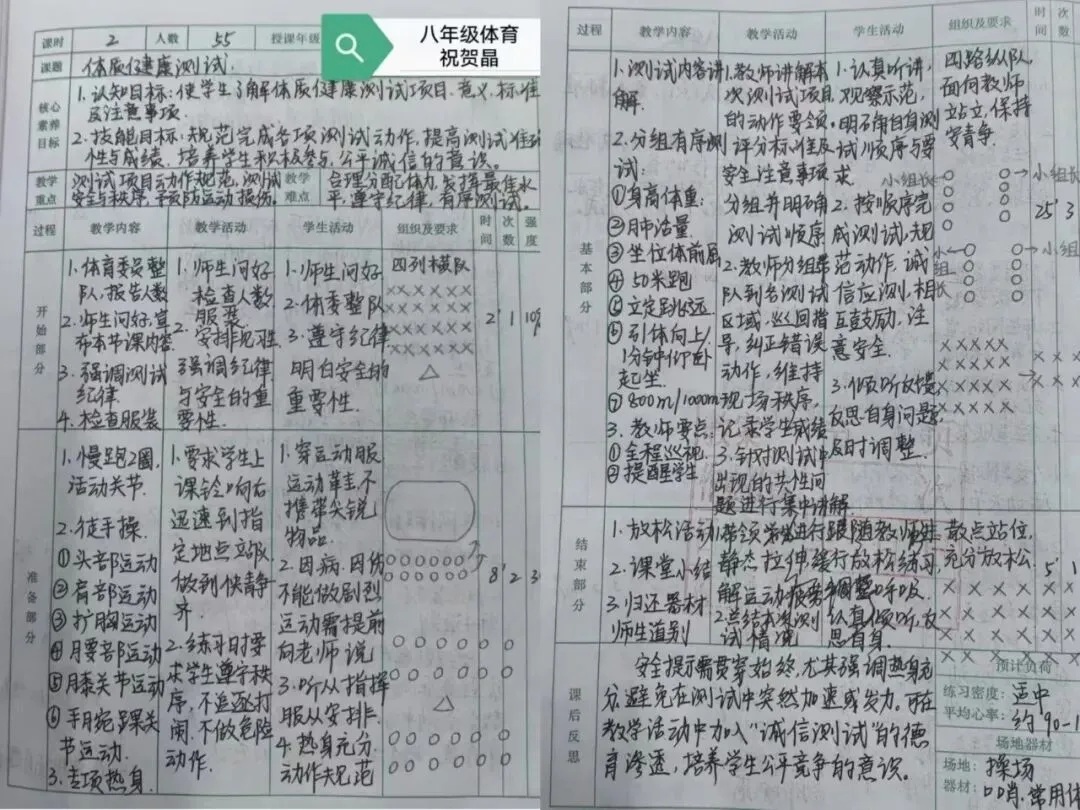 课时 2 人数 55 授课年级
八年级体育
祝贺晶
课题 体质健康测试.
核心素养目标
1.认知目标:使学生了解体质健康测试项目.意义.标准
及注意事项
2.技能目标.规范完成各项测试动作,提高测试准确
性与成绩.培养学生积极参与.公平诚信的意识。
教学重点 测试项目动作规范,测试
安全与秩序,预防运动损伤。
教学难点 合理分配体力,发挥最佳水
平,遵守纪律,有序测试.
过程 教学内容 教学活动 学生活动 组织及要求 时间 次数 强度
开始部分
1.体育委员整
队,报告人数
2.师生问好,宣
布本节课内容
3.强调测试
纪律.
4.检查服装
1.师生问好
检查人数
服装
2.安排见习生
强调纪律
与安全的重
要性.
1.师生问好
2.体委整队
3.遵守纪律
明白安全的
重要性.
四列横队
2' 1
准备部分
1.慢跑2圈,
活动关节.
2.徒手操.
①头部运动
②肩部运动
③扩胸运动
④腰部运动
⑤膝关节运动
⑥手腕踝关
节运动.
3.专项热身.
1.要求学生上
课铃响后
迅速到指
定地点站队
做到快静
齐
2.练习时要
求学生遵守秩
序,不追逐打
闹.不做危险
动作.
1.穿运动服
运动鞋.不
携带尖锐
物品
2.因病.因伤
不能做剧烈
运动需提前
向老师说
3.听从指挥
服从安排.
4.热身充分.
动作规范
8' 2 3
过程 教学内容 教学活动 学生活动 组织及要求 时间 次数
基本部分
1.测试内容讲
解.
2.分组有序测
试.
①身高体重:
②肺活量.
③坐位体前屈
④50米跑
⑤立定跳远.
⑥引体向上/
1分钟仰卧
起坐.
⑦800m/1000m
3.教师要点:
①全程巡视.
②提醒学生
1.教师讲解本
次测试项目
的动作要领.
评分标准及
安全注意事项
分组并明确
测试顺序
2.教师分组带
队到各测试
区域,巡回指
导,纠正错误
动作,维持
现场秩序,
记录学生成绩
3.针对测试中
出现的共性问
题进行集中讲解
1.认真听讲,
观察示范,
明确自身测
试顺序与要
求.
2.按顺序完
成测试,规
范动作.诚
信应测,相
互鼓励,注
意安全.
3.倾听反馈
反思自身问题,
及时调整.
四路纵队,
面向教师
站立,保持
安静.
小组长 小组长
小组长 小组
25' 3
结束部分
1.放松活动
2.课堂小结
3.归还器材.
师生道别
带领学生进行
静态拉伸缓
解运动疲劳
2.总结本次测
试情况
跟随教师进
行放松练习,
调整呼吸.
认真倾听,反
思自身.
散点站位,
充分放松.
5' 1
课后反思
安全提示需贯穿始终,尤其强调热身充
分.避免在测试中突然加速或发力.可在
教学活动中加入“诚信测试”的德
育渗透,培养学生公平竞争的意识。
预计负荷
练习密度: 适中
平均心率: 约90-1
场地器材
场地: 操场
器材: 口哨.常用体